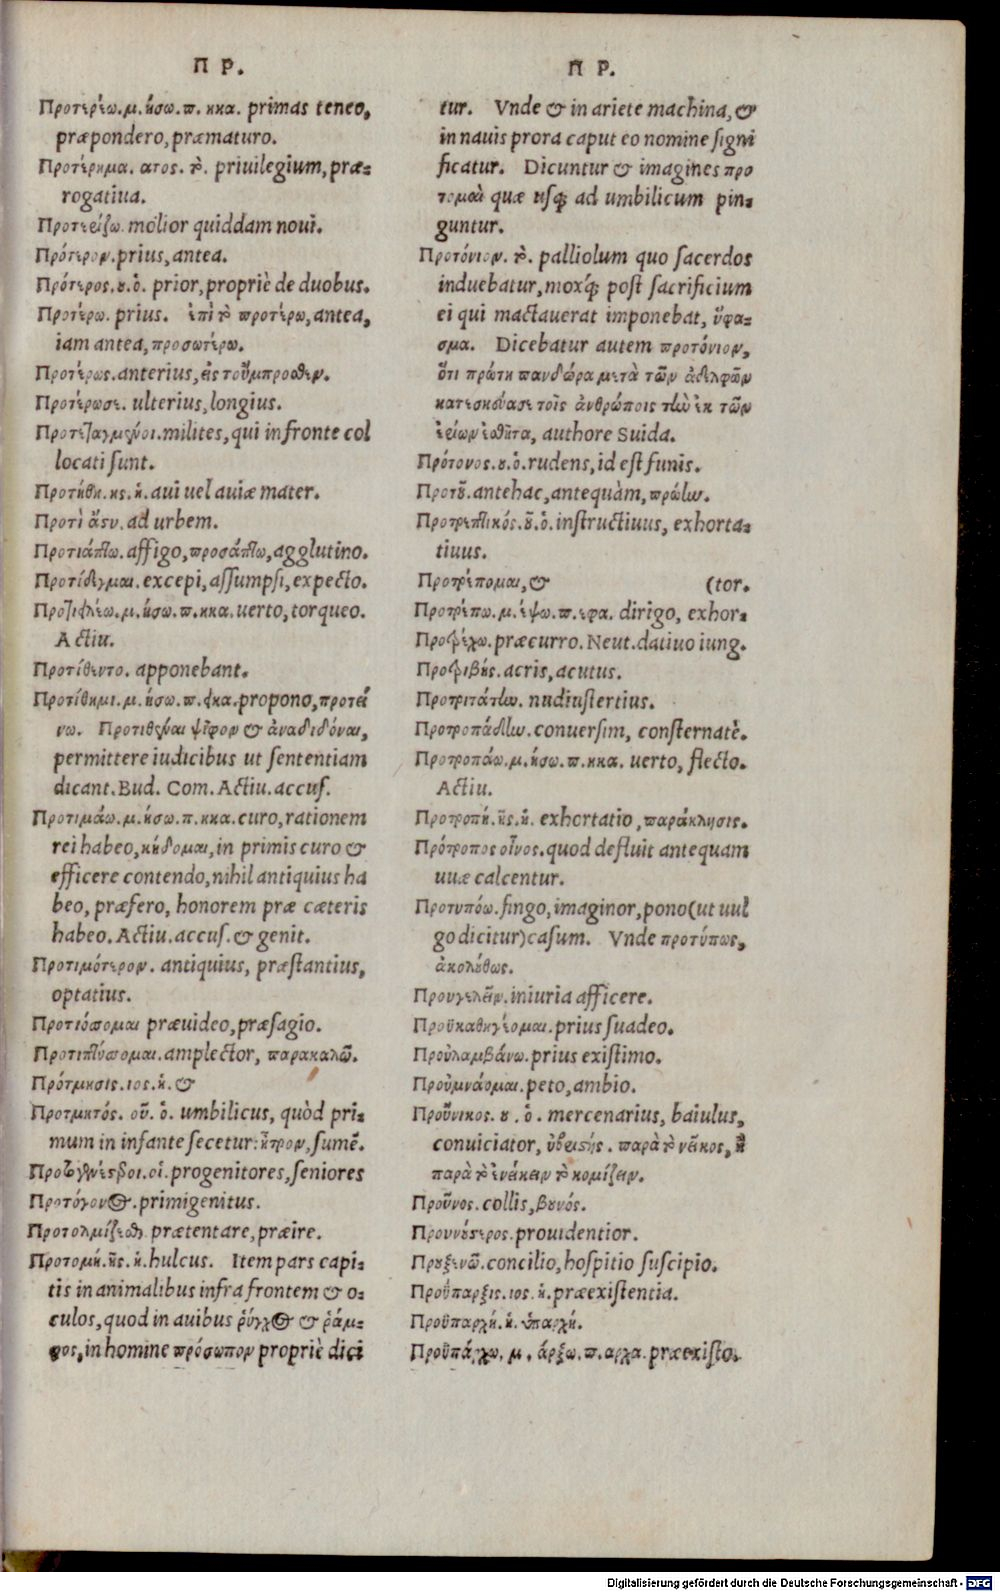 Π Ρ.
Προτερέω.μ.ήσω.π. ηκα. primas teneo,
præpondero, præmaturo.
Προτέρημα. ατος. τὸ. priuilegium, præ-
rogatiua.
molior quiddam noui.
Πρότερον. prius, antea.
Πρότερος.ου.ὁ. prior, propriè de duobus.
Προτέρω. prius. ἐπὶ τὸ προτέρω, antea,
iam antea, προσωτέρω.
Προτέρως. anterius, εἰς τοὔμπροσθεν.
Προτέρωσε. ulterius, longius.
Προτεταγμένοι. milites, qui in fronte col
locati sunt.
Προτήθη.ης.ἡ. aui uel auiæ mater.
Προτὶ ἄςυ. ad urbem.
Προτιάπτω. affigo, προσάπτω, agglutino.
Προτίδεγμαι. excepi, assumpsi, expecto.
μ.ήσω.π.ηκα. uerto, torqueo.
Actiu.
Προτίθεντο. apponebant.
Προτίθημι.μ.ήσω.π.εικα. propono, προτεί
νω. Προτιθέναι ψῆφον & ἀναδιδόναι,
permittere iudicibus ut sententiam
dicant. Bud. Com. Actiu. accus.
Προτιμάω.μ.ήσω.π.ηκα. curo, rationem
rei habeo, κήδομαι, in primis curo &
efficere contendo, nihil antiquius ha
beo, præfero, honorem præ cæteris
habeo. Actiu. accus. & genit.
Προτιμότερον. antiquius, præstantius,
optatius.
Προτιόσομαι præuideo, præsagio.
Προτιπτύσομαι. amplector, παρακαλῶ.
Πρότμησις.ιος.ἡ. &
Προτμητός. οῦ. ὁ. umbilicus, quòd pri-
mum in infante secetur: ἦτρον, sumē.
οἱ. progenitores, seniores
Προτόγονος. primigenitus.
Προτολμίζεσθαι prætentare, præire.
Προτομή.ῆς.ἡ. hulcus. Item pars capi-
tis in animalibus infra frontem & o-
culos, quod in auibus ῥύγχος & ῥάμ-
φος, in homine πρόσωπον propriè dici
Π Ρ.
tur. Vnde & in ariete machina, &
in nauis prora caput eo nomine signi
ficatur. Dicuntur & imagines προ
τομαὶ quæ usq; ad umbilicum pin-
guntur.
Προτόνιον. τὸ. palliolum quo sacerdos
induebatur, moxq́; post sacrificium
ei qui mactauerat imponebat, ὕφα-
σμα. Dicebatur autem προτόνιον,
ὅτι πρώτη πανδώρα μετὰ τῶν ἀδελφῶν
κατεσκεύασε τοῖς ἀνθρώποις τὴν ἐκ τῶν
ἐρίων ἐσθῆτα, authore Suida.
Πρότονος.ου.ὁ. rudens, id est funis.
Προτοῦ. antehac, antequàm, πρώτω.
Προτρεπτικός.οῦ.ὁ. instructiuus, exhorta-
tiuus.
Προτρέπομαι, & (tor.
Προτρέπω.μ.έψω.π.εφα. dirigo, exhor-
Προτρέχω. præcurro. Neut. datiuo iung.
Προτριβής. acris, acutus.
Προτριτάτω. nudiustertius.
Προτροπάδην. conuersim, consternatè.
Προτροπάω.μ.ήσω.π.ηκα. uerto, flecto.
Actiu.
Προτροπή.ῆς.ἡ. exhortatio, παράκλησις.
Πρότροπος οἶνος. quod defluit antequam
uuæ calcentur.
Προτυπόω. fingo, imaginor, pono (ut uul
go dicitur) casum. Vnde προτύπως,
ἀκολούθως.
Προυγελεῖν. iniuria afficere.
Προϋκαθηγέομαι. prius suadeo.
Προὐλαμβάνω. prius existimo.
Προὐμνάομαι. peto, ambio.
Προὔνικος. ου. ὁ. mercenarius, baiulus,
conuiciator, ὑβριστής. παρὰ τὸ νεῖκος, ἢ
παρὰ τὸ ἐνείκειν τὸ κομίζειν.
Προῦνος. collis, βουνός.
Προυνούστερος. prouidentior.
Προυξενῶ. concilio, hospitio suscipio.
Προΰπαρξις.ιος.ἡ. præexistentia.
Προϋπαρχή.ἡ. ὑπαρχή.
Προϋπάρχω. μ. άρξω.π.αρχα. præexisto.
Digitalisierung gefördert durch die Deutsche Forschungsgemeinschaft - DFG